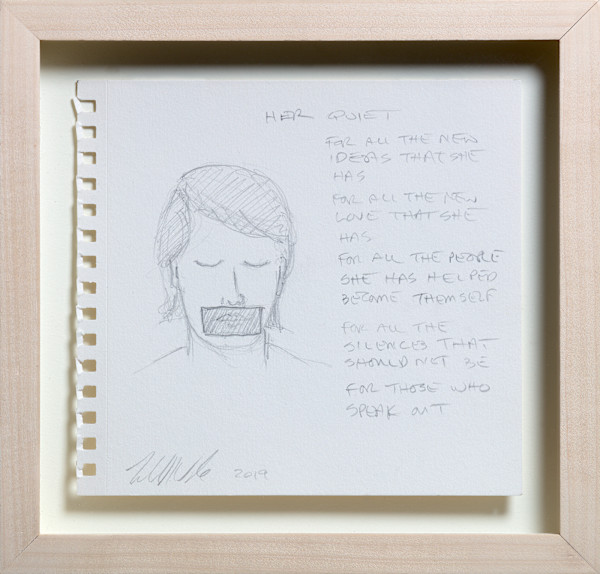 HER QUIET
FOR ALL THE NEW
IDEAS THAT SHE
HAS
FOR ALL THE NEW
LOVE THAT SHE
HAS
FOR ALL THE PEOPLE
SHE HAS HELPED
BECOME THEMSELF
FOR ALL THE
SILENCES THAT
SHOULD NOT BE
FOR THOSE WHO
SPEAK OUT
2019